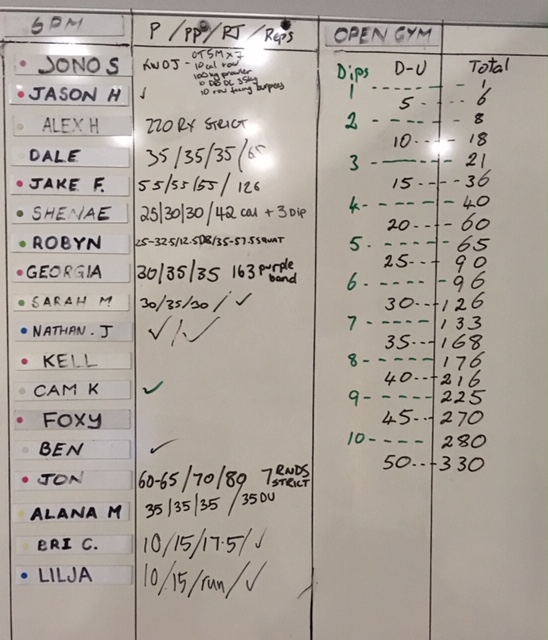 6PM P / PP / RT / Reps
JONO S KWOJ - OTSM x 7
10 cal row
100kg prowler
10 row facing burpees
JASON H ✓
ALEX H 220 RX STRICT
DALE 35/35/35/65
JAKE F. 55/55/55/126
SHENAE 25/30/30/42 cal + 3 Dip
ROBYN
GEORGIA 30/35/35 163 purple
band
SARAH M 30/35/30/ ✓
NATHAN. J ✓/✓
KELL
CAM K ✓
FOXY
BEN ✓
JON 60-65/70/80 7 RNDS
STRICT
ALANA M 35/35/35/35DU
BRI C. 10/15/17.5/✓
LILJA 10/15/run/✓
OPEN GYM
Dips D-U Total
1 ----- - 1
5 --- - 6
2 ----- - 8
10 --- - 18
3 ----- - 21
15 --- - 36
4 ----- - 40
20 --- - 60
5 ----- - 65
25 --- 90
6 ----- - 96
30 --- 126
7 ----- 133
35 --- 168
8 ----- 176
40 --- 216
9 ----- 225
45 --- 270
10 ----- 280
50 --- 330